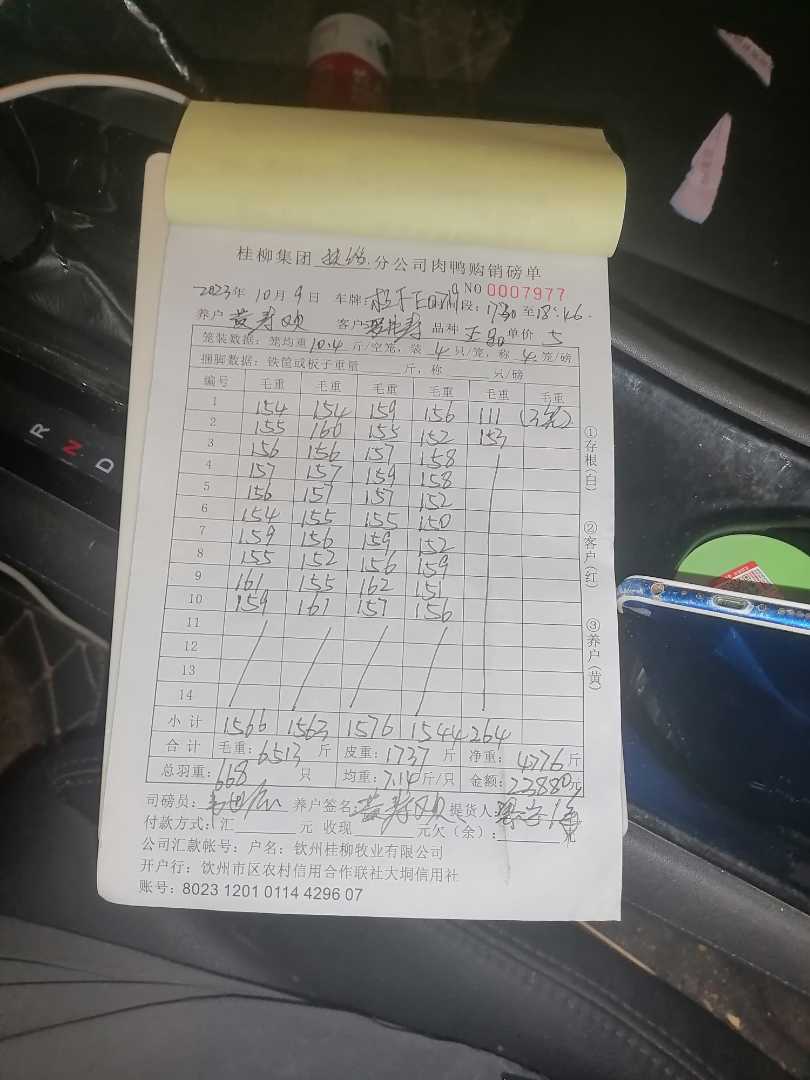 桂柳集团 分公司肉鸭购销磅单
NO 0007977
2023年 10月 9日 车牌: 段: 1730 至 18:46
养户 黄寿 客户 品种 单价 5
笼装数据: 笼均重 10.4 斤/空笼, 装 4 只/笼, 称 4 笼/磅
捆脚数据: 铁筐或板子重量 斤, 称 只/磅
编号 毛重 毛重 毛重 毛重 毛重 毛重
1 154 154 159 156 111 (3笼)
2 155 160 155 152 153
3 156 156 157 158
4 157 157 159 158
5 156 157 157 152
6 154 155 155 150
7 159 156 159 152
8 155 152 156 159
9 161 155 162 151
10 159 161 157 156
11
12
13
14
小计 1566 1563 1576 1544 264
合计 毛重: 6513 斤 皮重: 1737 斤 净重: 4776 斤
总羽重: 668 只 均重: 7.14 斤/只 金额: 23880元
司磅员: 养户签名: 黄寿 提货人:
付款方式: 汇 元 收现 元欠(余): 元
公司汇款帐号: 户名: 钦州桂柳牧业有限公司
开户行: 钦州市区农村信用合作联社大垌信用社
账号: 8023 1201 0114 4296 07
①存根(白) ②客户(红) ③养户(黄)
R
N
D